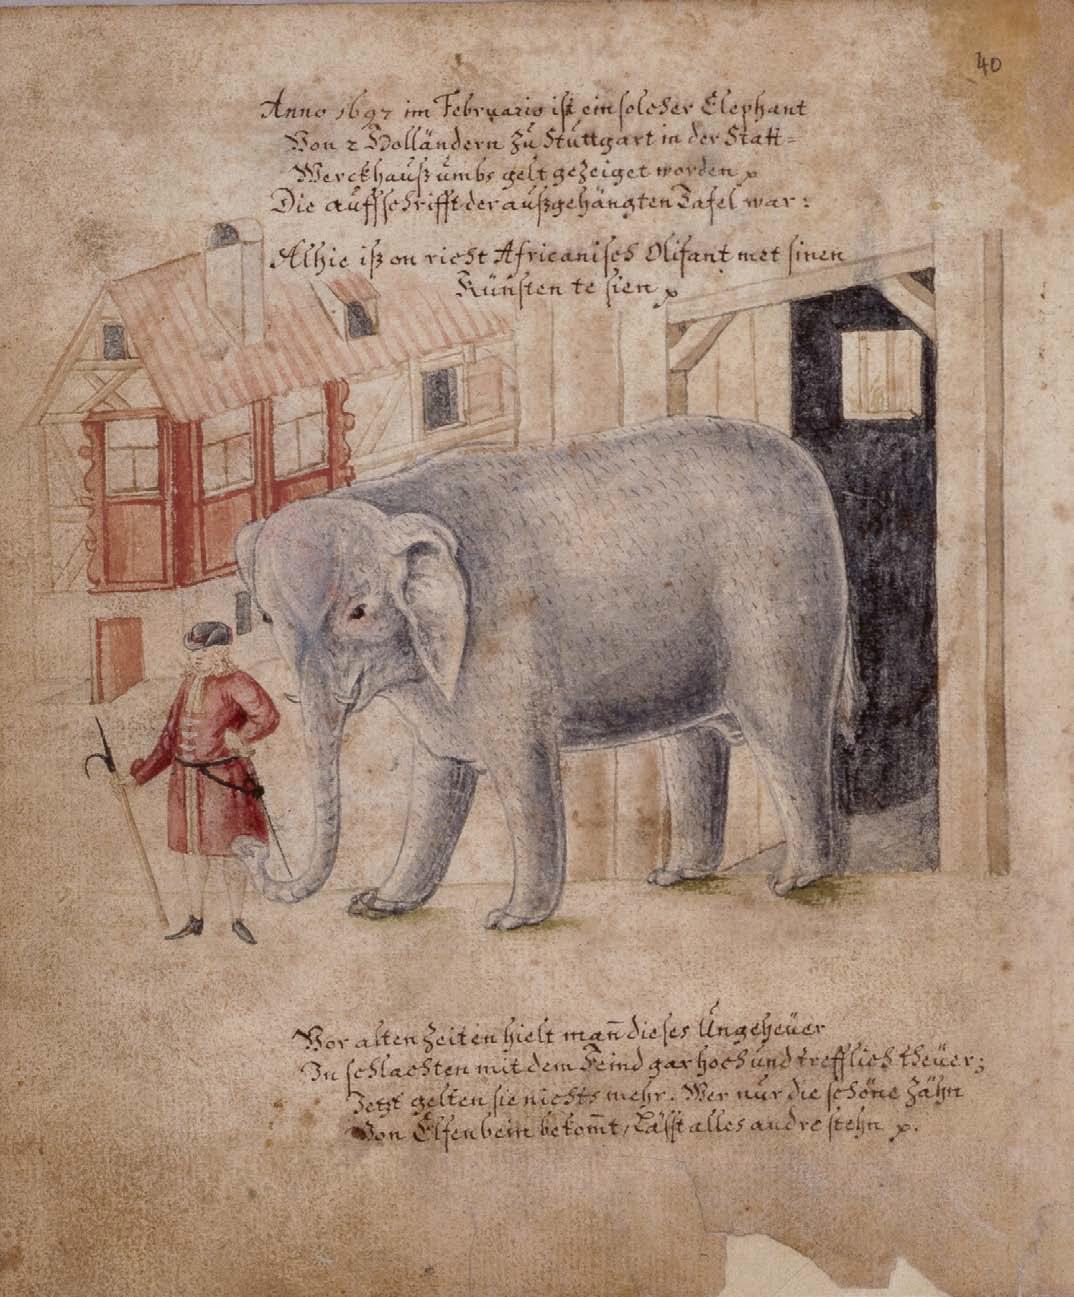 40
Anno 1697 im Februario ist ein solcher Elephant
Von 2 Holländern zu Stuttgart in der Statt-
Werckhauß umbs gelt gezeiget worden
Die auffschrifft der außgehängten Tafel war:
Alhie iß on richt Africanisch Olifant met sinen
Künsten te sien
Vor alten Zeiten hielt man̄ dieses Ungeheüer
In schlachten mit dem Feind gar hoch und trefflich theüer;
Jetzt gelten sie nichts mehr. Wer nur die schöne Zähn
Von Elfenbein bekom̄t, Lässt alles andre stehn